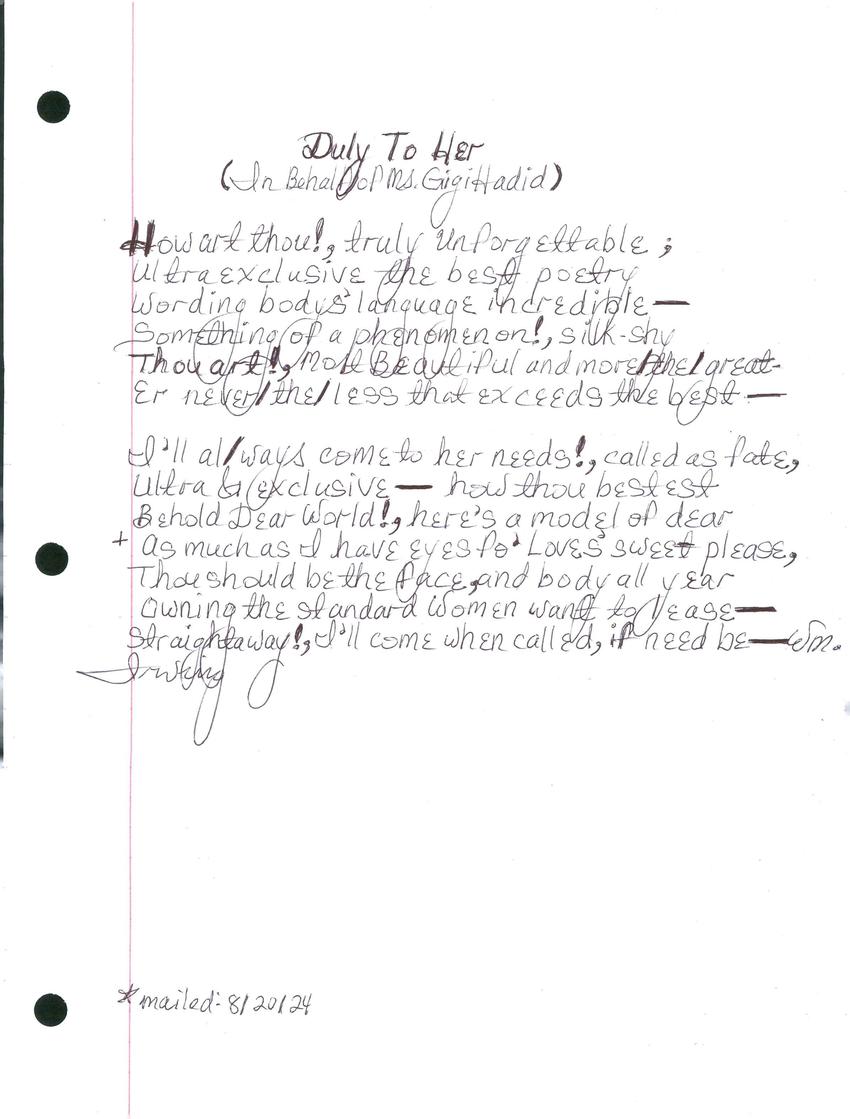 Duly To Her
(In Behalf of Ms. Gigi Hadid)
How art thou!, truly unforgettable;
Ultra exclusive the best poetry
Wording bodys' language incredible—
Something of a phenomenon!, silk-shy
Thou art!, Most Beautiful and more/the/great-
Er never/the/less that exceeds the best—
I'll al/ways come to her needs!, called as fate,
Ultra & exclusive— how thou bestest
Behold Dear World!, here's a model of dear
+ As much as I have eyes fo' Love's sweet please,
Thou should be the face, and body all year
Owning the standard Women want to lease—
Straightaway!, I'll come when called, if need be—Wm.
*mailed: 8/20/24